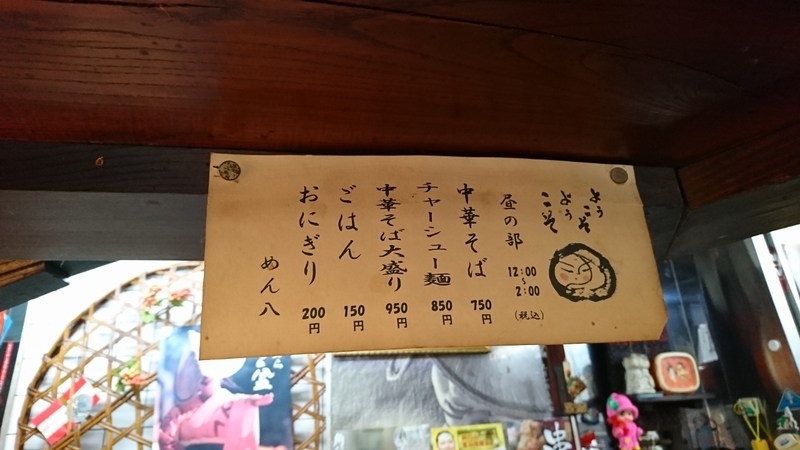 ようこそ
ようこそ
昼の部 12:00~2:00 (税込)
中華そば 750円
チャーシュー麺 850円
中華そば大盛り 950円
ごはん 150円
おにぎり 200円
めん八